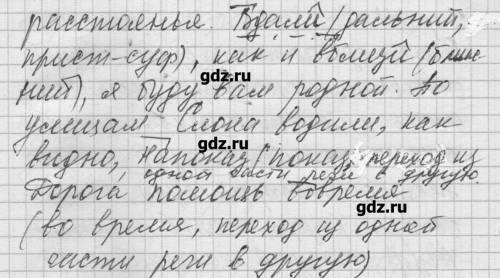 расстоянья. Вдали (дальний,
прист-суф), как и вблизи (ближ
ний), я буду вам родной. По
улицам Слона водили, как
видно, напоказ (показ, переход из
одной части речи в другую
Дорога помощь вовремя
(во время, переход из одной
части речи в другую)
gdz.ru
gdz.ru
gdz.ru
gdz.ru
gdz.ru